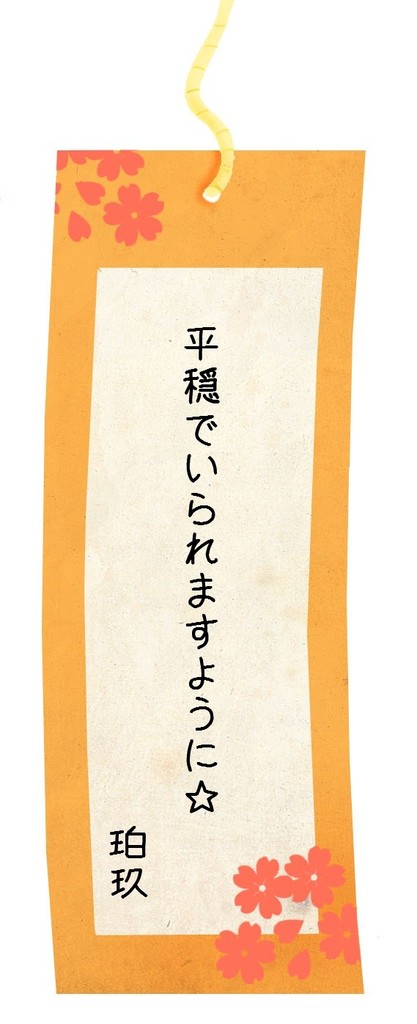 平穏でいられますように☆
珀玖